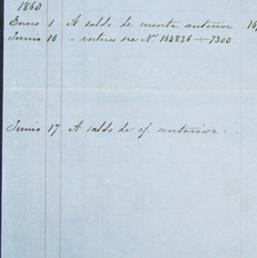 1860
Enero 1 A saldo de cuenta anterior 16
Junio 16 " interes sre Nos 164836 — 7300
Junio 17 A saldo de c/ anterior . .